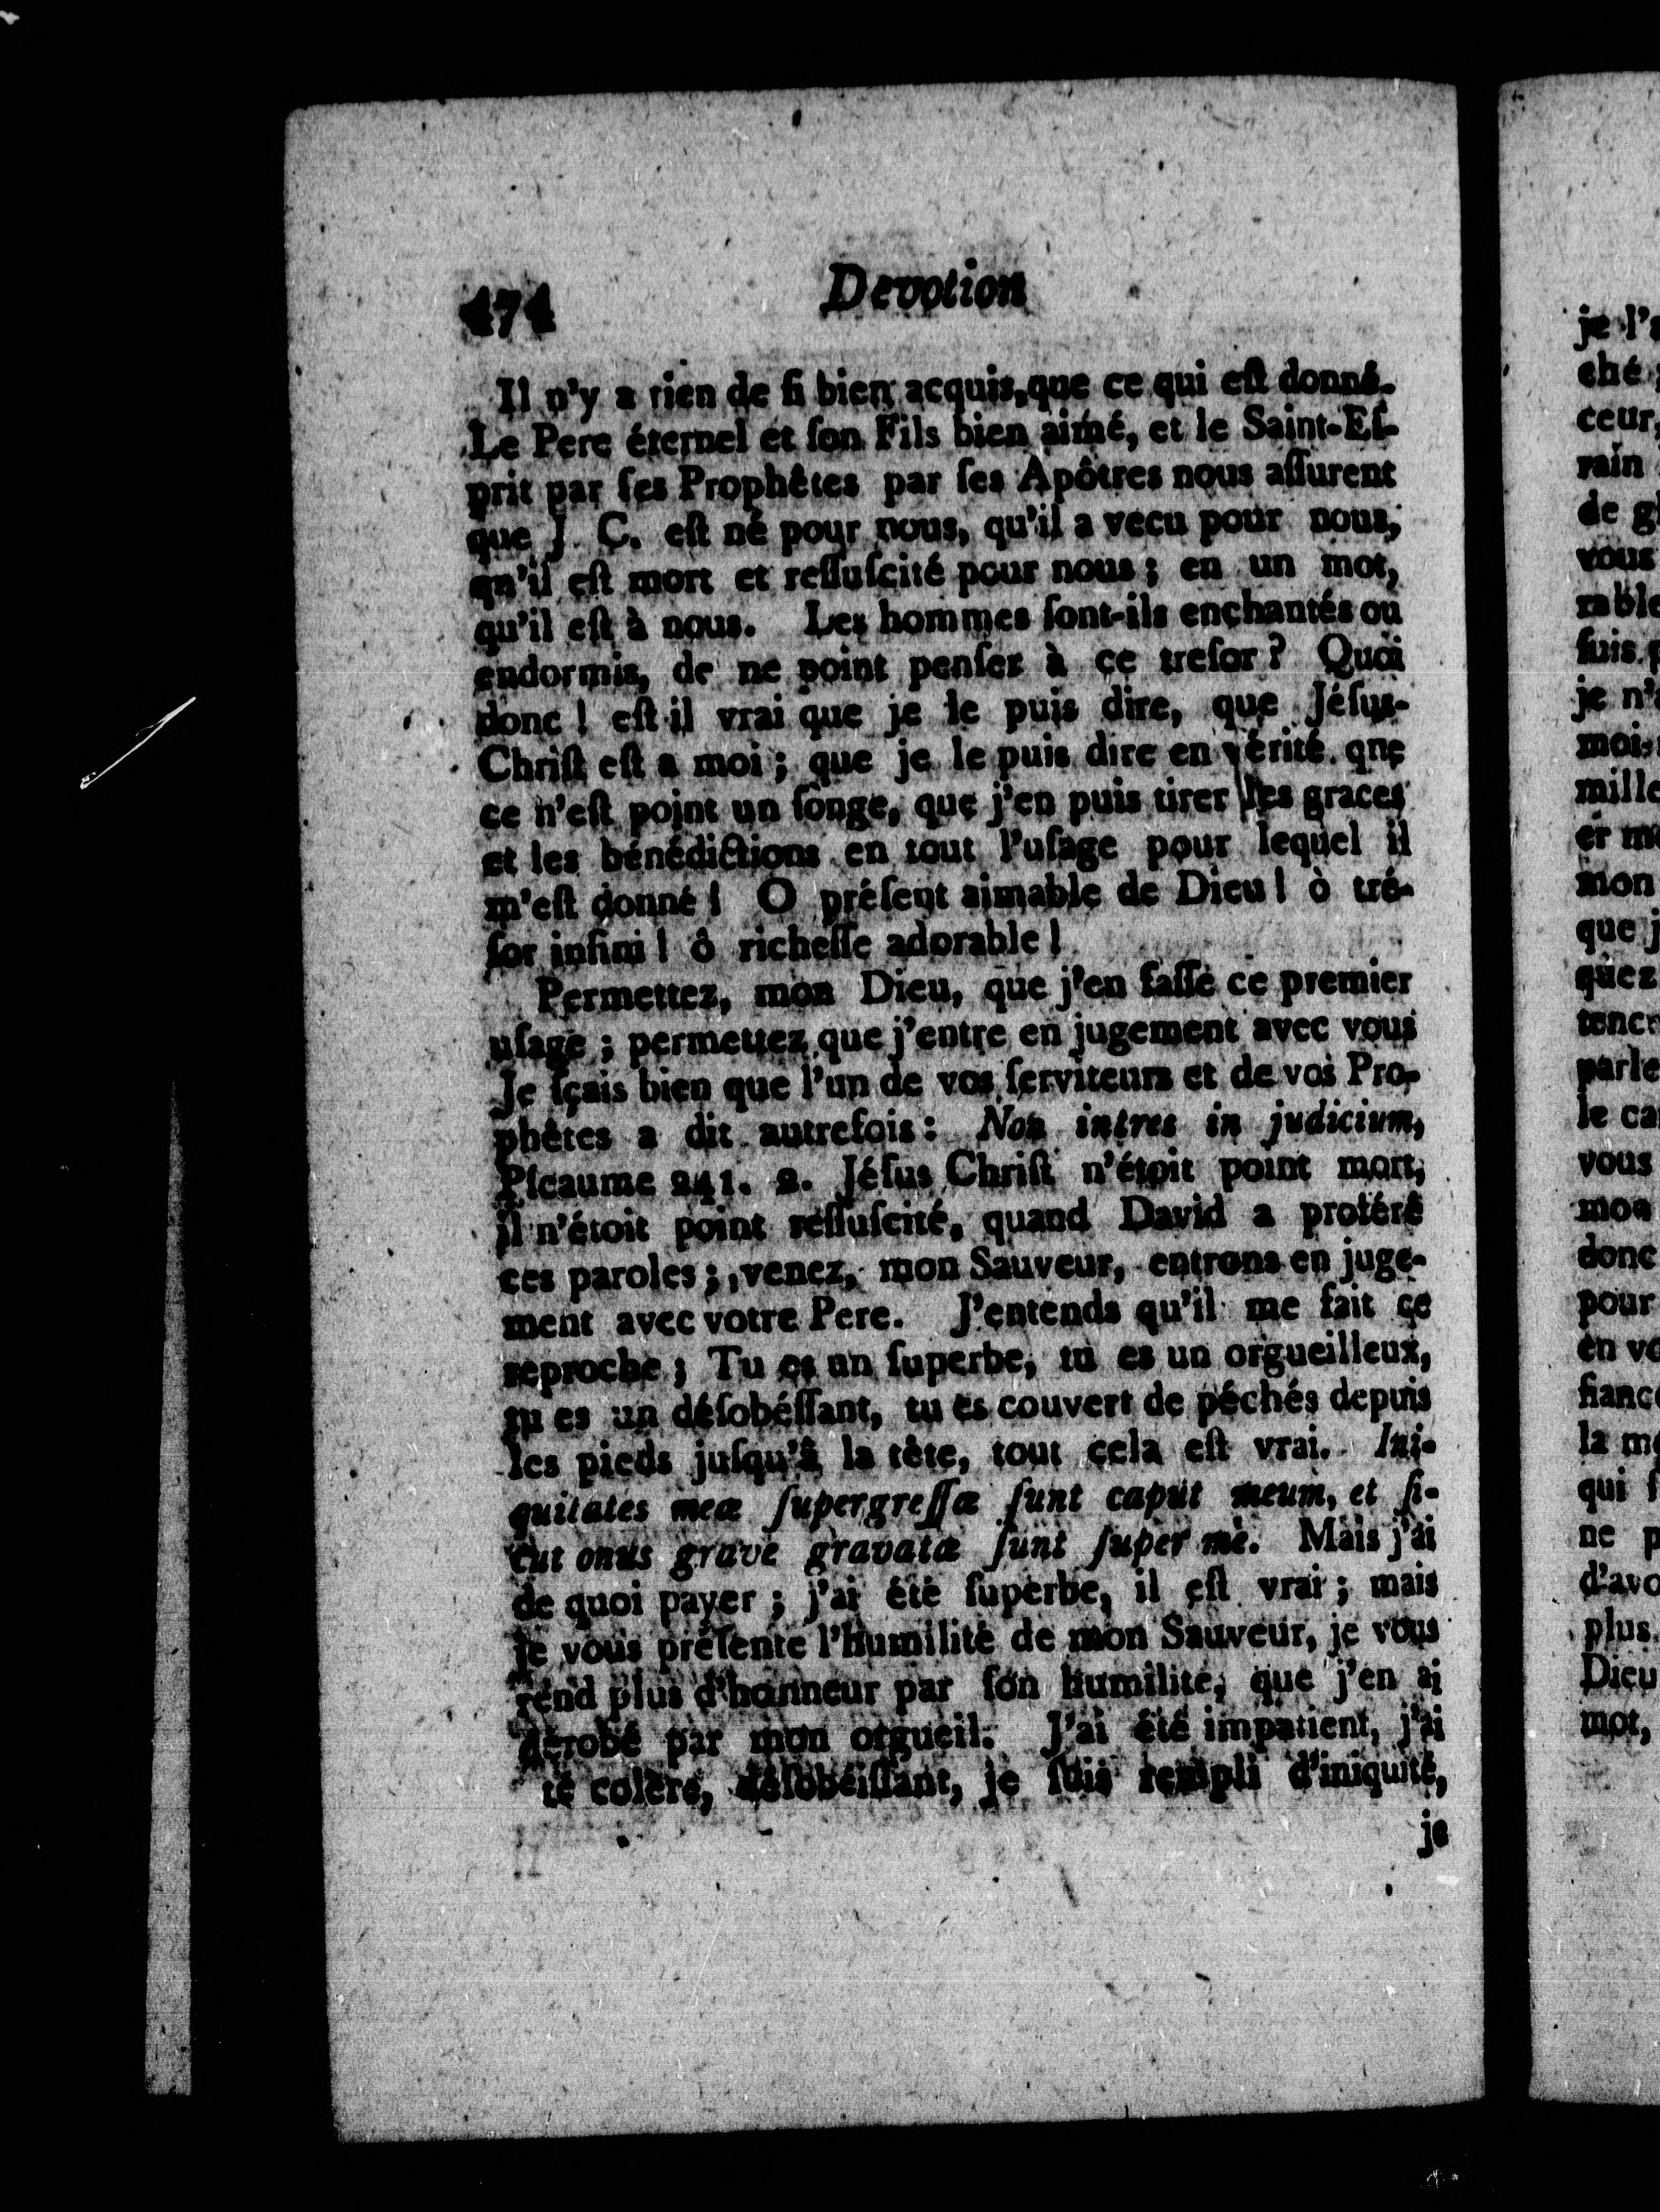 474
Devotion
Il n'y a rien de ſi bien acquis, que ce qui eſt donné.
Le Pere éternel et ſon Fils bien aimé, et le Saint-Eſ-
prit par ſes Prophêtes par ſes Apôtres nous aſſurent
que J. C. eſt né pour nous, qu'il a vecu pour nous,
qn'il eſt mort et reſſuſcité pour nous; en un mot,
qu'il eſt à nous. Les hommes ſont-ils enchantés ou
endormis, de ne point penſer à ce treſor? Quoi
donc! eſt-il vrai que je le puis dire, que Jéſus-
Chriſt eſt a moi; que je le puis dire en vérité qne
ce n'eſt point un ſonge, que j'en puis tirer les graces
et les bénédictions en tout l'uſage pour lequel il
m'eſt donné! O préſent aimable de Dieu! ò tré-
ſor infini! ô richeſſe adorable!
Permettez, mon Dieu, que j'en faſſe ce premier
uſage; permettez que j'entre en jugement avec vous
Je ſçais bien que l'un de vos ſerviteurs et de vos Pro-
phêtes a dit autrefois: Non intres in judicium,
Pſcaume 241. 2. Jéſus Chriſt n'étoit point mort,
il n'étoit point reſſuſcité, quand David a proféré
ces paroles; venez, mon Sauveur, entrons en juge-
ment avec votre Pere. J'entends qu'il me fait ce
reproche; Tu es un ſuperbe, tu es un orgueilleux,
tu es un déſobéſſant, tu es couvert de péchés depuis
les pieds juſqu'â la tête, tout cela eſt vrai. Ini-
quitates meæ ſupergreſſæ ſunt caput meum, et ſi-
cut onus grave gravatæ ſunt ſuper me. Mais j'ai
de quoi payer; j'ai été ſuperbe, il eſt vrai; mais
je vous préſente l'humilité de mon Sauveur, je vous
rend plus d'honneur par ſon humilité, que j'en ai
dérobé par mon orgueil. J'ai été impatient, j'ai
té colère, déſobéiſſant, je ſuis rempli d'iniquité,
je
je l'
ché;
ceur,
rain
de gl
vous
rable
ſuis p
je n'
moi,
mille
er me
mon
que j
quez
tencr
parle
le ca
vous
mon
donc
pour
en vo
fiance
la mo
qui ſ
ne p
d'avo
plus.
Dieu
mot,